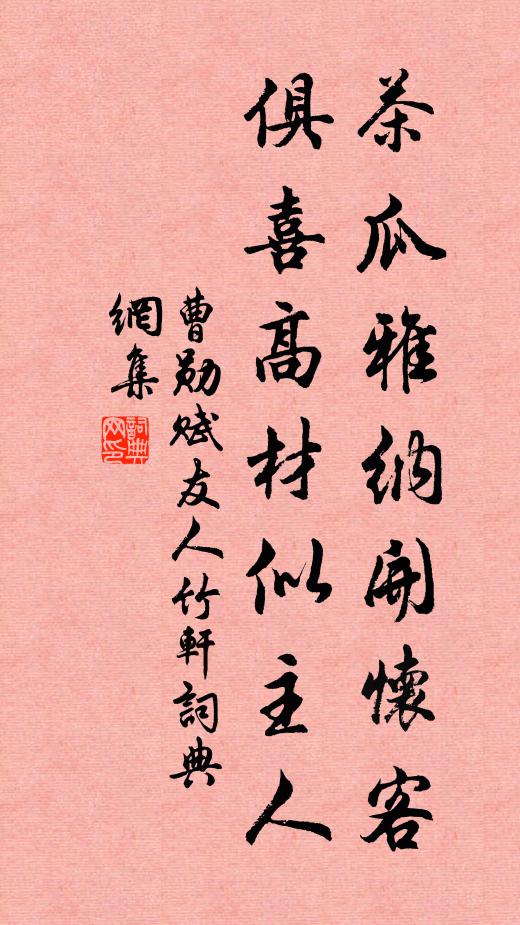 茶瓜雅納開懷客
俱喜高材似主人
曹勛賦友人竹軒詞典
網集
詞典
网印